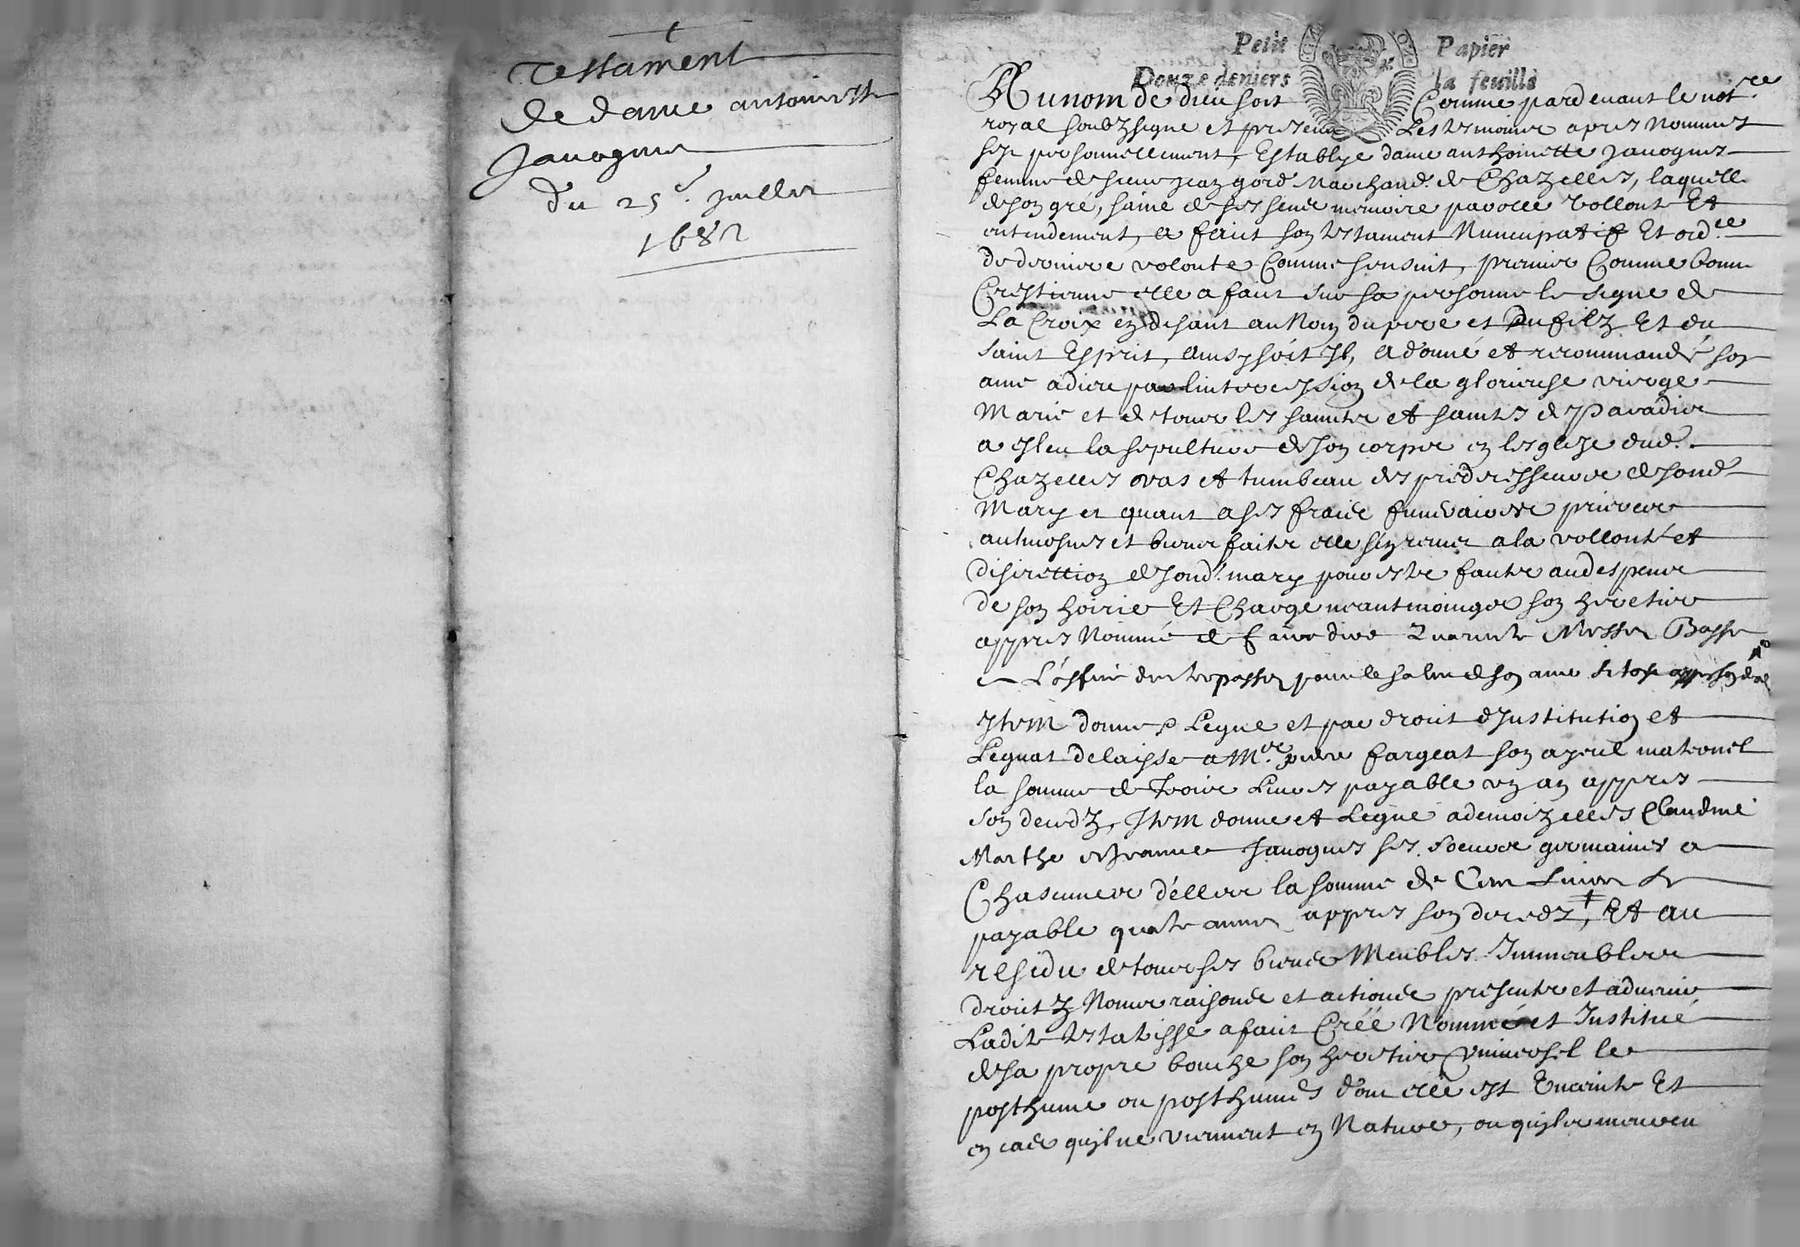 Testament
de dame antoinette
Janogues
du 25e. Juillet
1682
Petit Papier
Douze deniers la feuille
Au nom de dieu soit Comme pardevant le notre
royal soubzsigne et presens Les tesmoins apres nommes
sest personnellement Establye dame anthoinette Janogues
femme de sieur Jean gord marchand de Chazelles, laquelle
de son gre, saine de ses sens memoire parolle vollonte Et
entendement, a faict son testament Nuncupatif Et ordce
de derniere volonte Comme sensuit, premier Comme bonne
Crestienne elle a faict sur sa personne le signe de
La Croix en disant au Nom du pere et Du filz Et du
Saint Esprit, ainsy soit Il, a donné et recommandé son
ame a dieu par lintercession de la glorieuse vierge
Marie et de tous les saincts et saintes de Paradis
a esleu la sepulture de son corps en lesglize dud.
Chazelles vas et tumbeau des predecesseurs de sond
Mary et quant a ses frais funeraires prieres
aulmosnes et biens faits elle sen remet a la vollonté et
discrettion de sond. mary pour estre faits aux despens
de son hoirie Et Charge neantmoings son heretier
appres Nommé de faire dire Quarante Messes Basses
L'office des trepasses pour le salut de son ame si tost appres son deces
Item donne Legue et par droit d'Institution et
Leguat delaisse a Mre. piere fargeat son ayeul maternel
la somme de Troix Livres payable un an appres
son decedz, Item donne et Legue a demoizelles Claudine
Marthe et Jeanne Janogues ses soeurs germaines a
Chascunes d'elles la somme de Cens Livres
payable quatre annes appres son decedz, Et au
residu de tous ses biens Meubles Immeubles
droitz Noms raisons et actions presents et advenir
Ladite testatisse a fait Créé Nommé et Institué
de sa propre bouche son heretier Universel le
posthume ou posthumes d'ont elle est Enceinte Et
en cas quil ne viennent en Nature, ou quils meuren